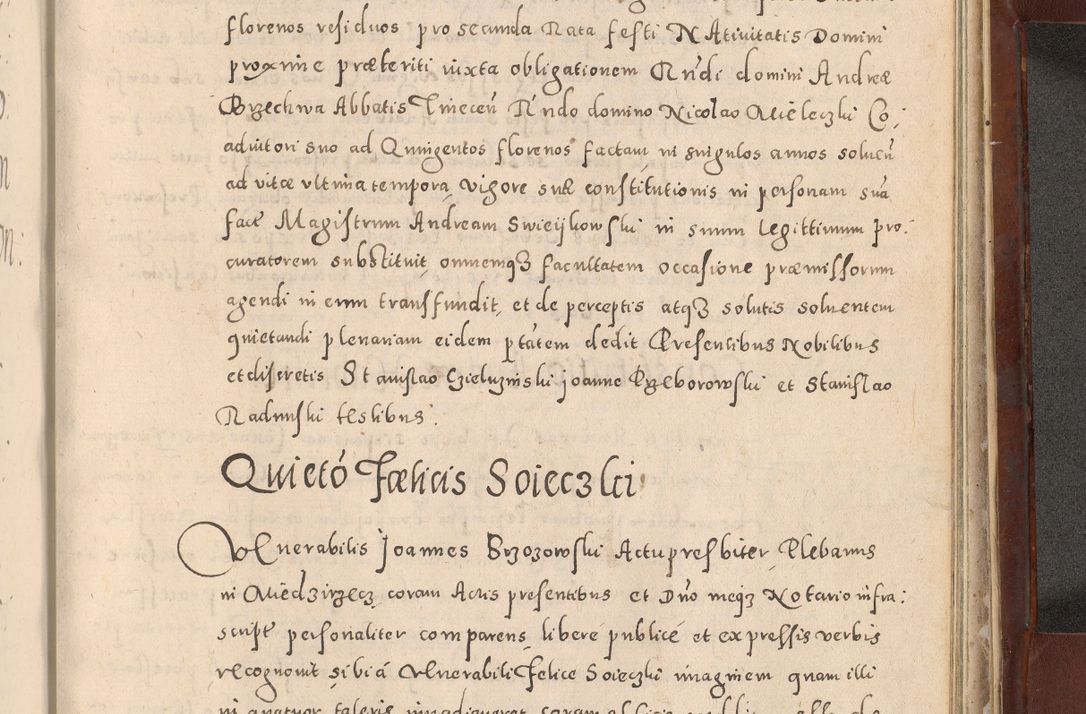 florenos residuos pro secunda Rata festi NAtiuitatis Domini
proxime præteriti iuxta obligationem Rndi domini Andreæ
Brzechwa Abbatis Tinecen̄ Rndo domino Nicolao Mieleczki Co,
adiutori suo ad Quingentos florenos factam in singulos annos soluen̄
ad vitæ vltima tempora, vigore suæ constitutionis in personam sua
fact Magistrum Andream Swieijkowski in suum legittimum pro:
curatorem substituit, omnemqȝ facultatem occasione præmissorum
agendi in eum transfundit, et de perceptis atqȝ solutis soluentem
quietandi plenariam eidem ptātem dedit Presentibus Nobilibus
et discretis Stanislao Czieluzinski joanne Przeborowski et Stanislao
Radunski testibus.
Quietō Fœlicis Soieczki
VEnerabilis Joannes Brzozowski Actu presbiter Plebanus
in Miedzirzecz coram Actis presentibus et Dn̄o meqȝ Notario infra:
script personaliter comparens, liberè publicè et expressis verbis
recognouit sibi á VEnerabili Felice Soieczki imaginem quam illi
in quatuor taleris